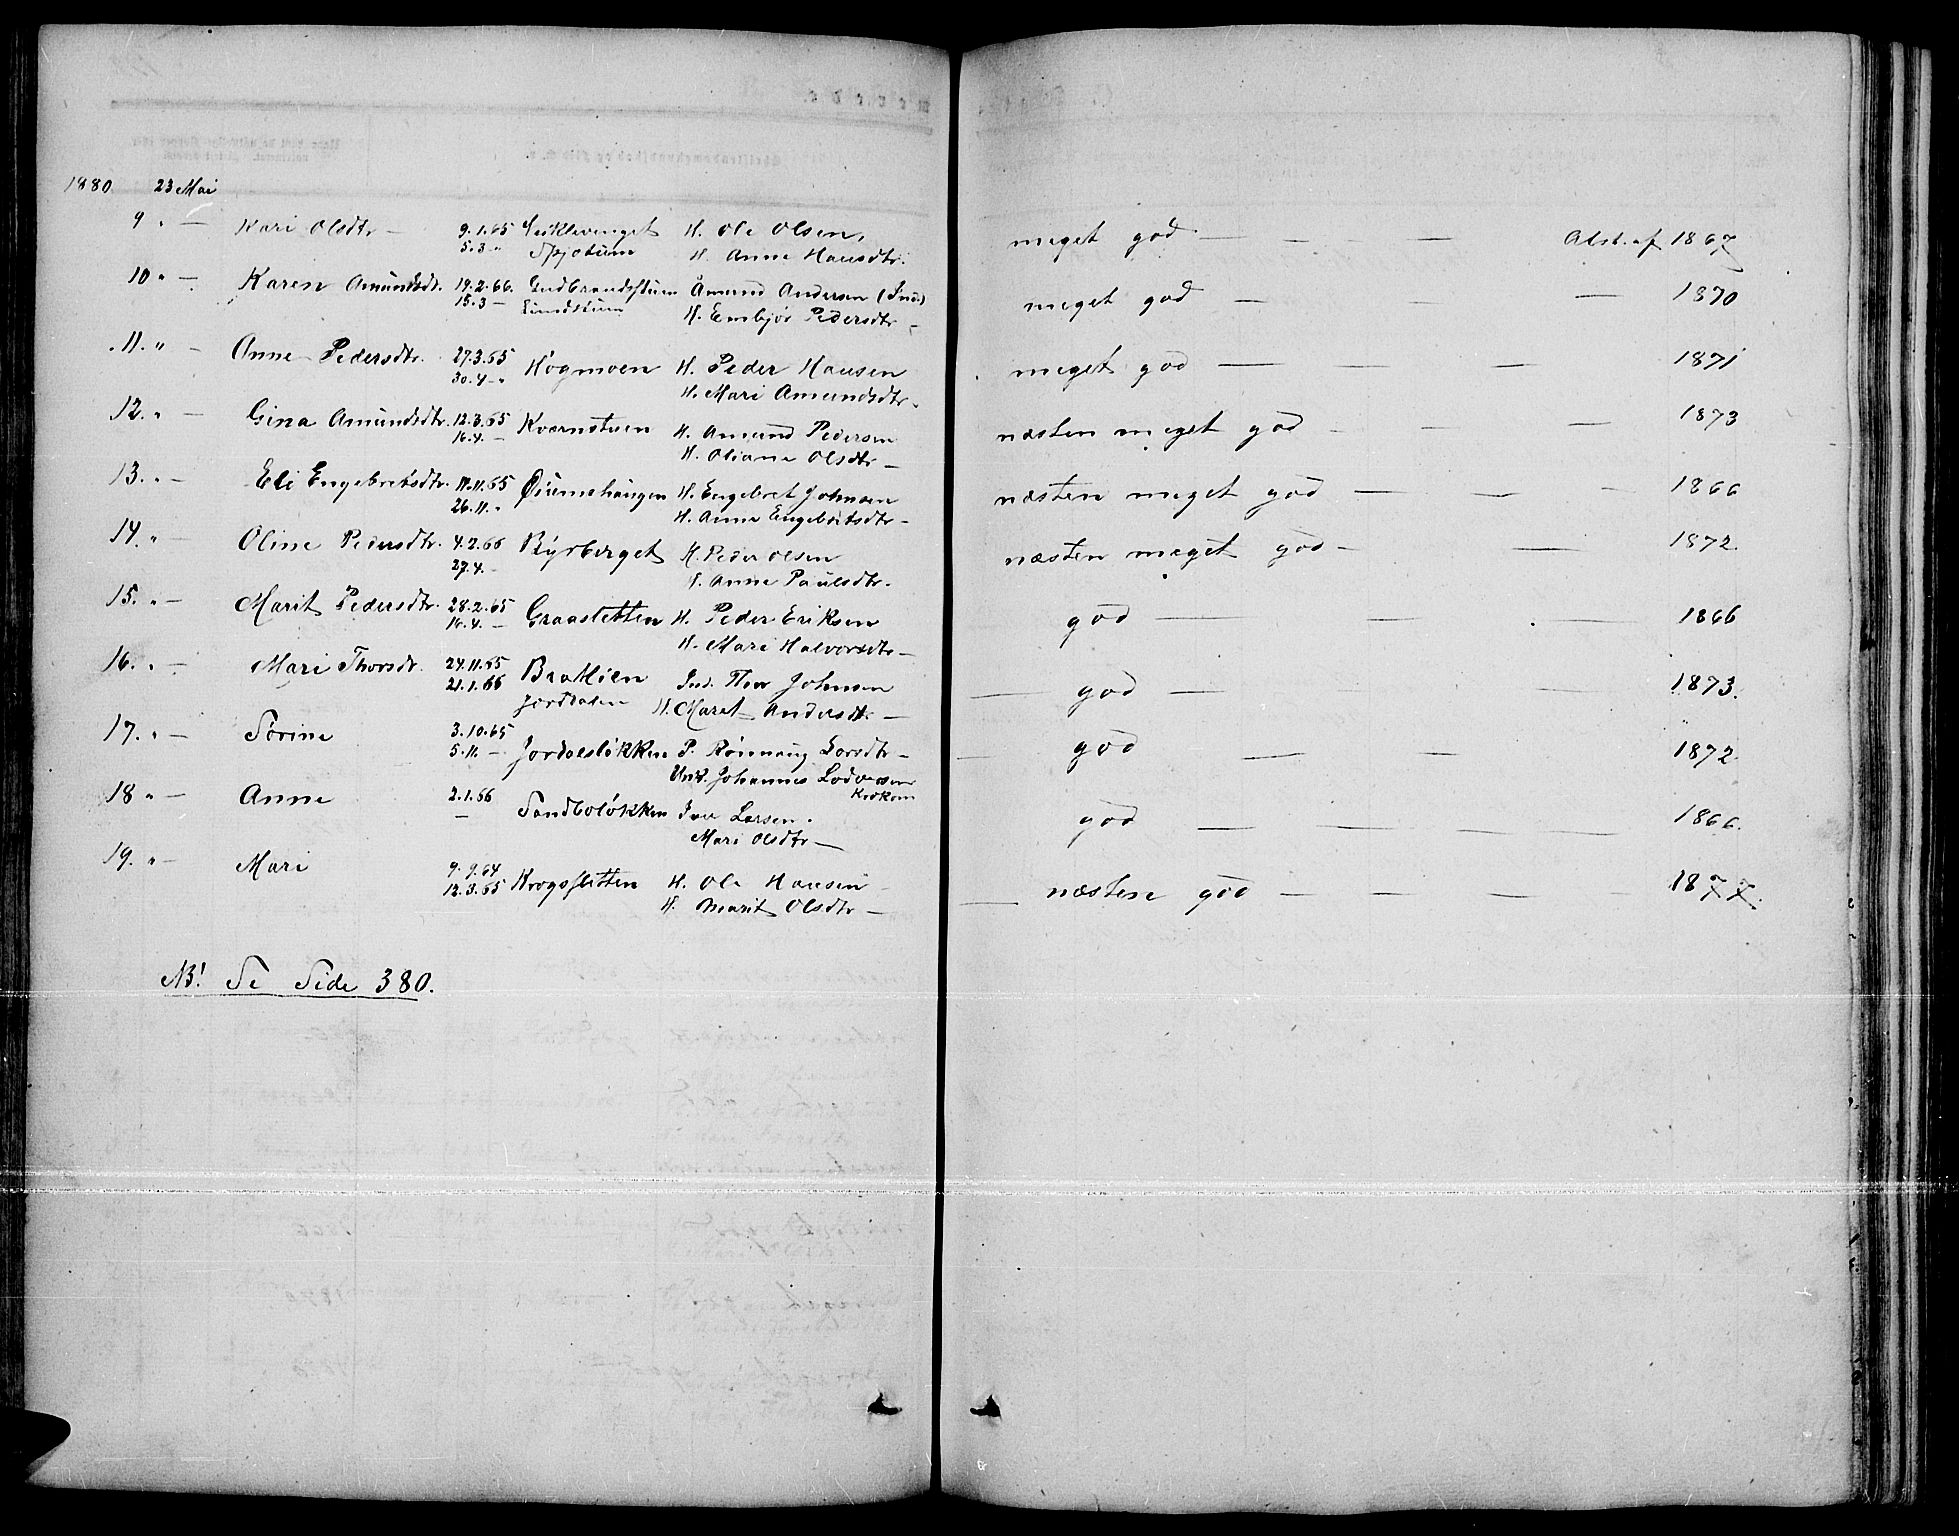 1880. 23 Mai
9 " — Kari Olsdtr — 9.1.65 H. Ole Olsen, meget god — — — — Atst. af 1867
5.3 " Spjotum H. Anne Hansdtr.
10 " — Karen Amundsdtr. 19.2.66. Gudbrandsstuen Amund Andersen (Ind.) meget god — — — 1870
15.3 — Sundstuen H. Embjør Pedersdtr —
11. " — Anne Pedersdtr. 27.3.65 Kogmoen H. Peder Hansen meget god — — — 1871
30.4 — " H. Mari Amundsdtr.
12. " — Gina Amundsdtr. 12.3.65 Kvernstuen H. Amund Pedersen næsten meget god — — — 1873
16.4. — H. Oliane Olsdtr —
13. " — Eli Engebretsdtr. 11.11.65 Øiumshaugen H. Engebret Johnsen næsten meget god — — — 1866
26.11. " H. Anne Engebretsdtr —
14. " — Oline Pedersdtr. 4.2.66 Byrberget H. Peder Olsen næsten meget god — — 1872.
27.4. — H. Anne Paulsdtr.
15. " — Marit Pedersdtr. 28.2.65 Graasletten H. Peder Eriksen god — — — 1866
16.4. — H. Mari Halvorsdtr —
16. " — Mari Thorsdr. 24.11.65 Bratlien Ind. Thor Johnsen — god — — — 1873.
21.1.66 Jorddalen H. Maret Andersdt. —
17. " — Sørine 3.10.65 Jordalsløkken P. Rønnaug Larsdtr — — god — — — 1872.
5.11. — Unk. Johannes Lodvesen
18 " — Anne 2.1.66 Sandboløkken Iver Larsen. god — — — — 1866.
— Mari Olsdtr —
19. " — Mari 9.9.64 Krogsletten H. Ole Hansen — — næsten god — — — — 1877.
12.3.65 H. Marit Olsdtr —
NB! Se Side 380.